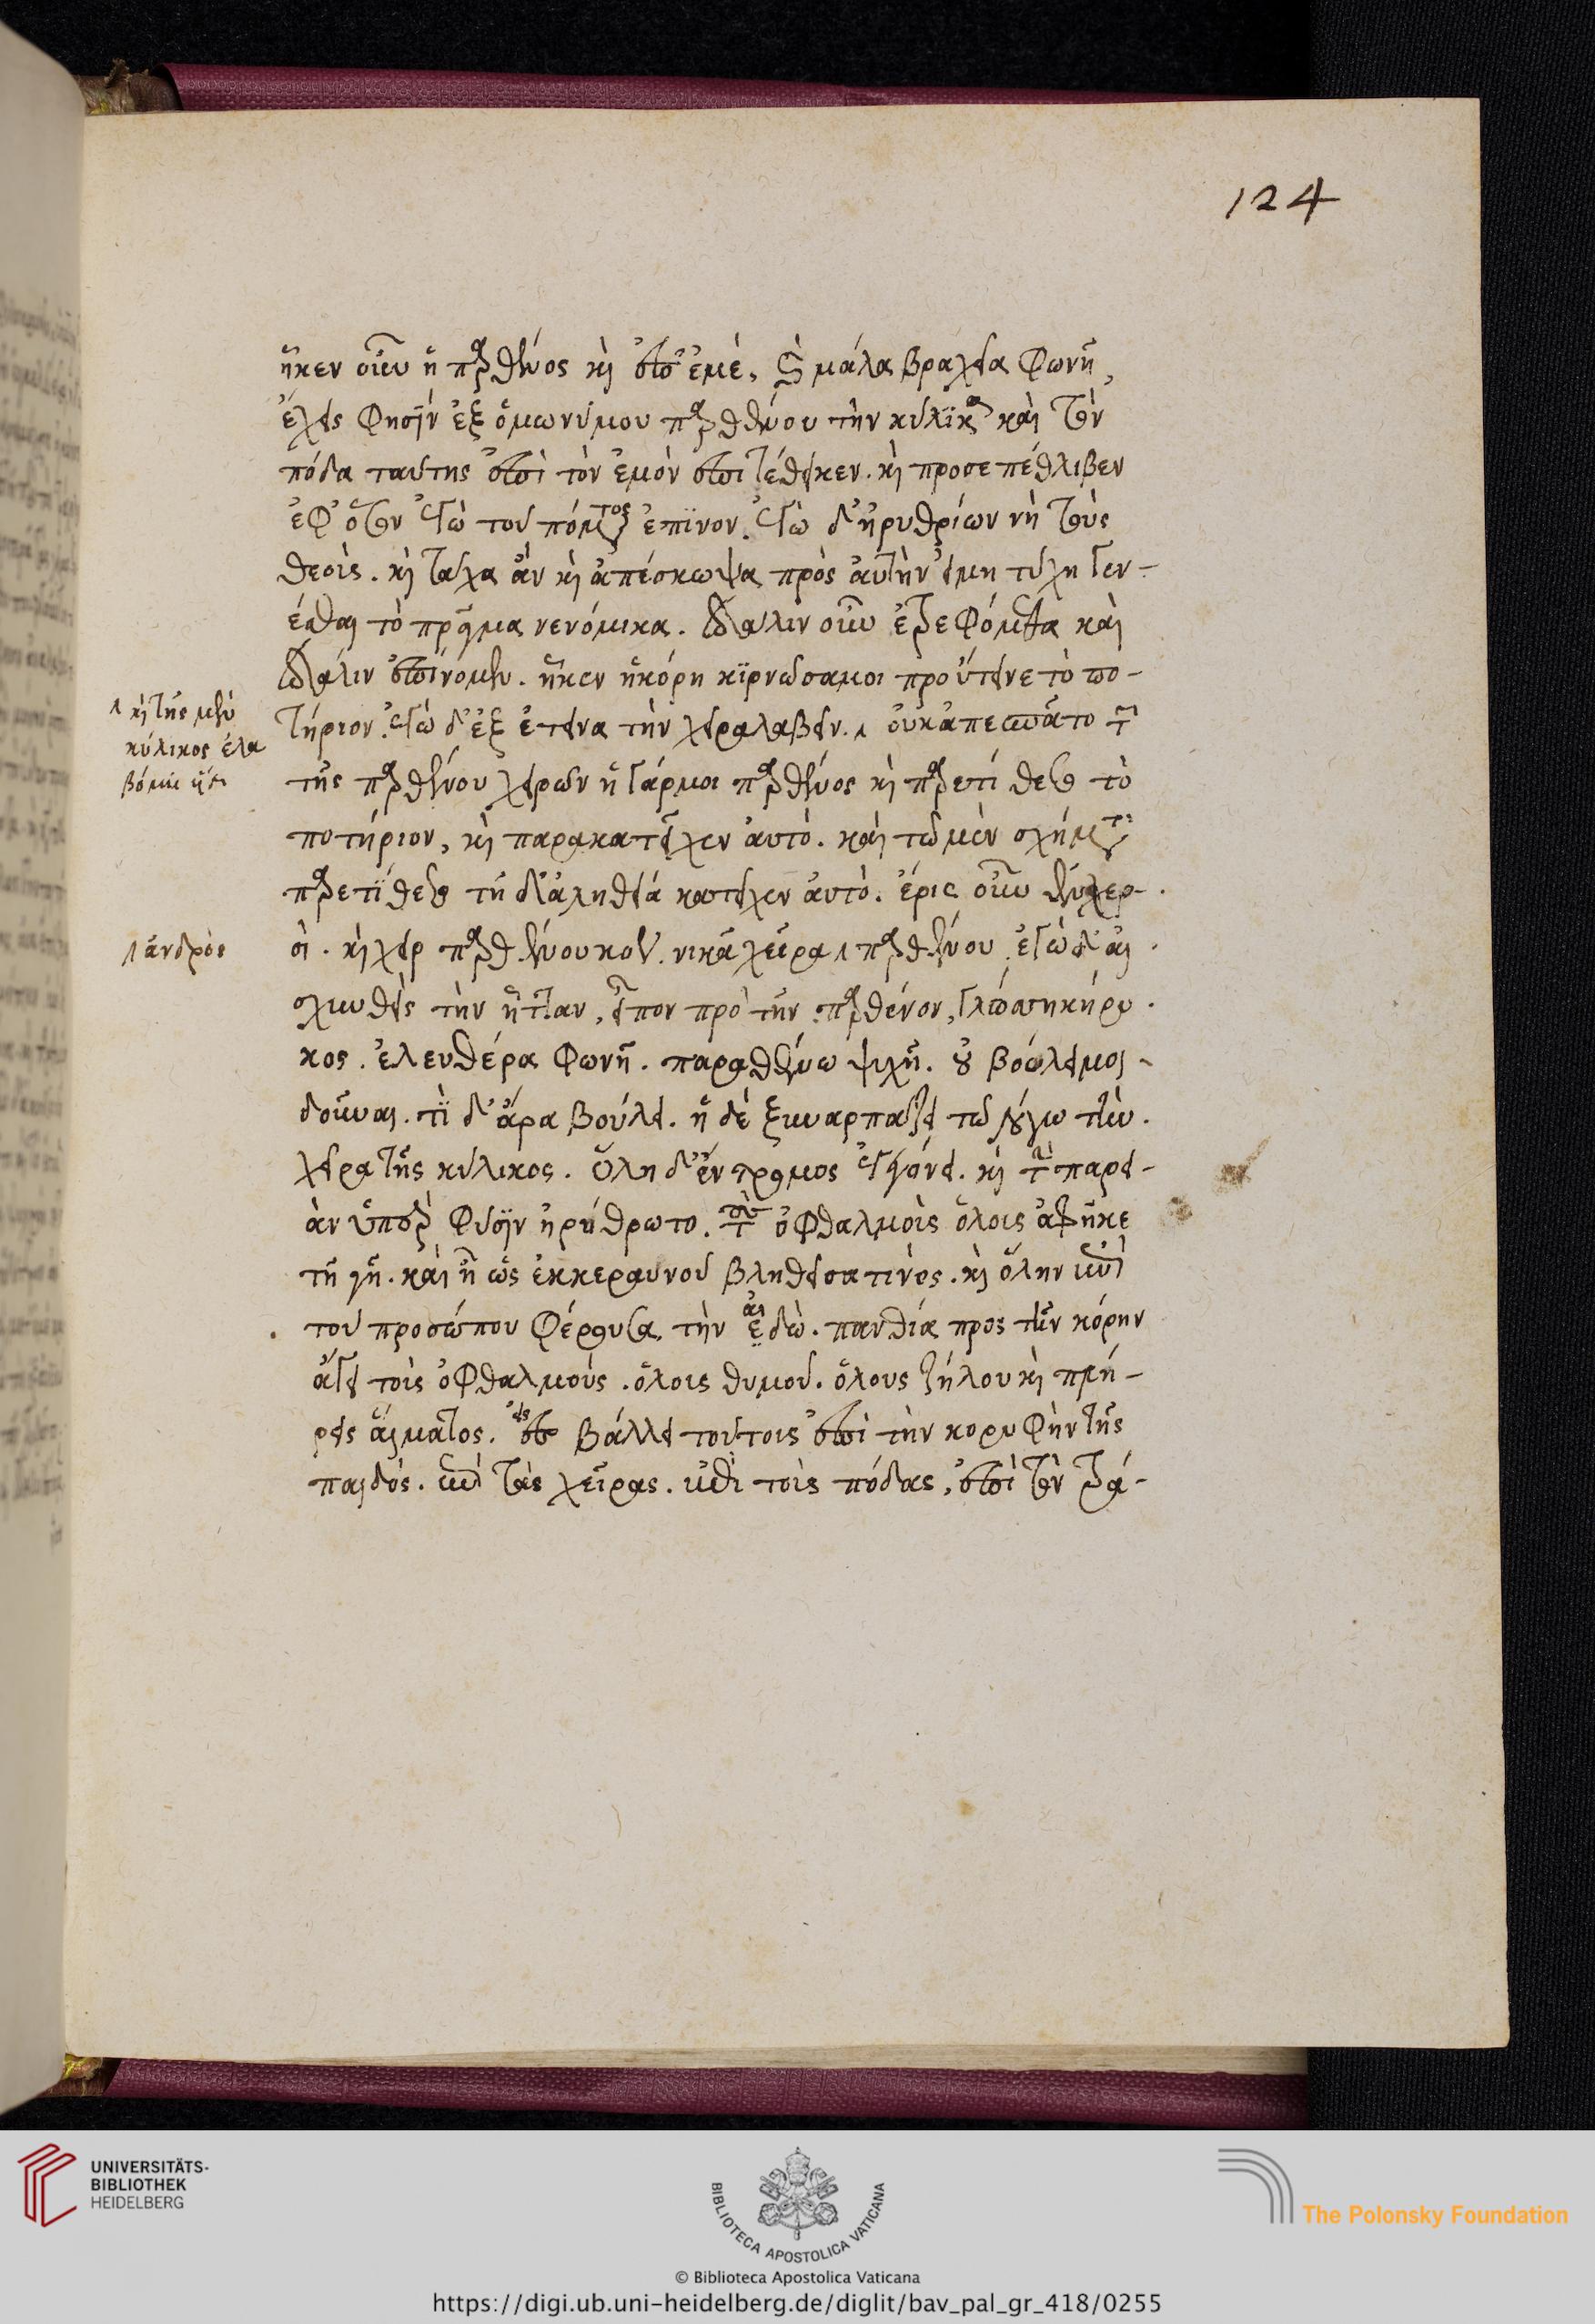 124
ἧκεν οὖν ἡ παρθένος καὶ ἐπ' ἐμὲ, καὶ μάλα βραχεία φωνῇ,
ἔχεις φησὶν ἐξ ὁμωνύμου παρθένου τὴν κύλικα καὶ τὸν
πόδα ταύτης ἐπὶ τὸν ἐμὸν ἐπιτέθεικεν. καὶ προσεπέθλιβεν
ἐφ' ὅσον ἐγὼ τοῦ πόματος ἔπινον. ἐγὼ δ' ἠρυθρίων νὴ τοὺς
θεοὺς. καὶ τάχα ἂν καὶ ἀπέσκωψα πρὸς αὐτὴν εἰ μη τύχη γεν-
έσθαι τὸ πρᾶγμα νενόμικα. πάλιν οὖν ἐτρεφόμεθα καὶ
πάλιν ἐπίνομεν. ἧκεν ἡ κόρη κιρνῶσα μοι προὔτεινε τὸ πο-
τήριον. ἐγὼ δ' ἐξέτεινα τὴν χεῖρα λαβεῖν. οὐκ ἀπεσπᾶτο
τῆς παρθένου χειρῶν ἡ γάρ μοι παρθένος καὶ παρετίθετο τὸ
ποτήριον, καὶ παρακατεῖχεν αὐτό. καὶ τῷ μὲν σχήματι
παρετίθετο τῇ δ' ἀληθεία κατεῖχεν αὐτό. ἔρις οὖν ἐν χερ-
σὶ. καὶ χεὶρ παρθένου κοὐ. νικᾶ χεῖρα παρθένου. ἐγὼ δ' αἰ
σχυνθεὶς τὴν ἧτταν, εἶπον πρὸ τὴν παρθένον, γλώσση κήρυ
κος. ἐλευθέρα φωνῇ. παρθένω ψυχῇ. οὐ βούλει μοι
δοῦναι. τί δ' ἄρα βούλει. ἡ δὲ ξυναρπαγεῖ τῷ λόγω τὴν
χεῖρα τῆς κύλικος. ὅλη δ' ἔντρομος ἐγεγόνει. καὶ τὴν παρει-
ὰν ὑπὲρ φύσιν ἠρύθρωτο. τοὺς ὀφθαλμοὺς ὅλους ἀφῆκε
τῇ γῇ. καὶ ἦ ὡς ἐκ κεραυνοῦ βληθεῖσα τινὸς. καὶ ὅλην ἐπὶ
τοῦ προσώπου φέρουσα τὴν αἰδὼ. πανθία προς τὴν κόρην
ἄγει τοὺς ὀφθαλμοὺς. ὅλους θυμοῦ. ὅλους ζήλου καὶ πλή-
ρεις αἵματος. ἐπιβάλλει τούτους ἐπὶ τὴν κορυφὴν τῆς
παιδός. ἐπὶ τὰς χεῖρας. ἐπὶ τοὺς πόδας, ἐπὶ τὸν τρά-
καὶ τῆς μὲν
κύλικος ἐλα
βόμην
ἀνδρὸς
UNIVERSITÄTS-
BIBLIOTHEK
HEIDELBERG
BIBLIOTECA APOSTOLICA VATICANA
The Polonsky Foundation
© Biblioteca Apostolica Vaticana
https://digi.ub.uni-heidelberg.de/diglit/bav_pal_gr_418/0255